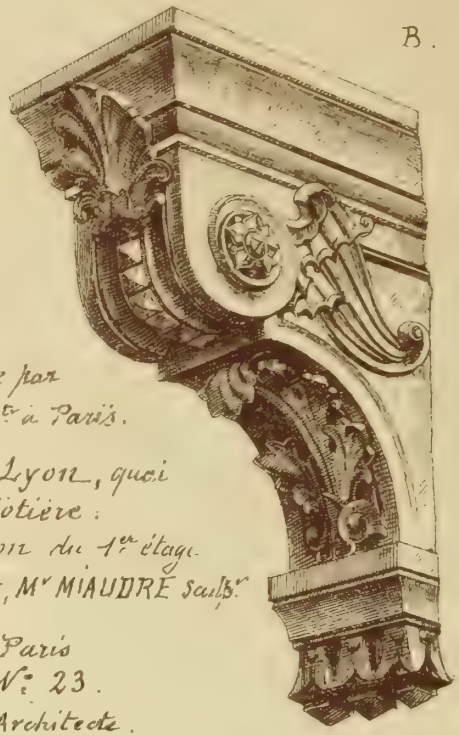 B.
par
à Paris.
Lyon, quai
du 1er étage
, Mr MIAUDRE Sculpr
Paris
No 23.
Architecte.